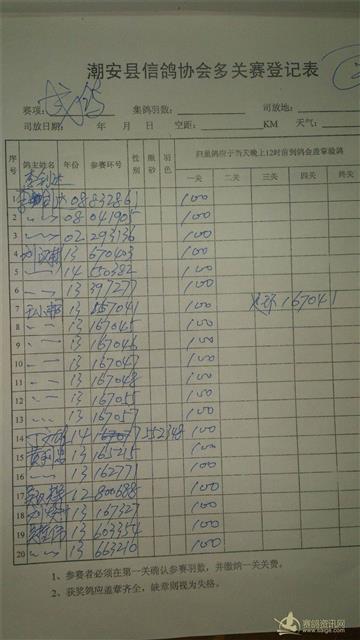 潮安县信鸽协会多关赛登记表
赛项: 成鸽 集鸽羽数: 司放地:
司放日期: 年 月 日 空距: KM 天气:
序号 鸽主姓名 年份 参赛环号 性别 眼砂 羽色 归巢鸽应于当天晚上12时前到鸽会盖章验鸽
一关 二关 三关 四关 终关
1 08 832861 100
2 〃 〃 08 041905 100
3 〃 〃 02 293136 100
4 13 670403 100
5 〃 〃 14 550382 100
6 〃 〃 13 397277 100
7 13 167041 100 167041
8 〃 〃 13 167045 100
9 〃 〃 13 167046 100
10 〃 〃 13 167047 100
11 〃 〃 13 167048 100
12 〃 〃 13 167055 100
13 〃 〃 13 167057 100
14 14 552348 100
15 13 165215 100
16 〃 〃 13 162771 100
17 12 800688 100
18 13 167327 100
19 13 603354 100
20 〃 〃 13 663210 100
1、参赛者必须在第一关确认参赛羽数，并缴纳一关关费。
2、获奖鸽应盖章齐全，缺章则视为失格。
赛鸽资讯网
www.saige.com